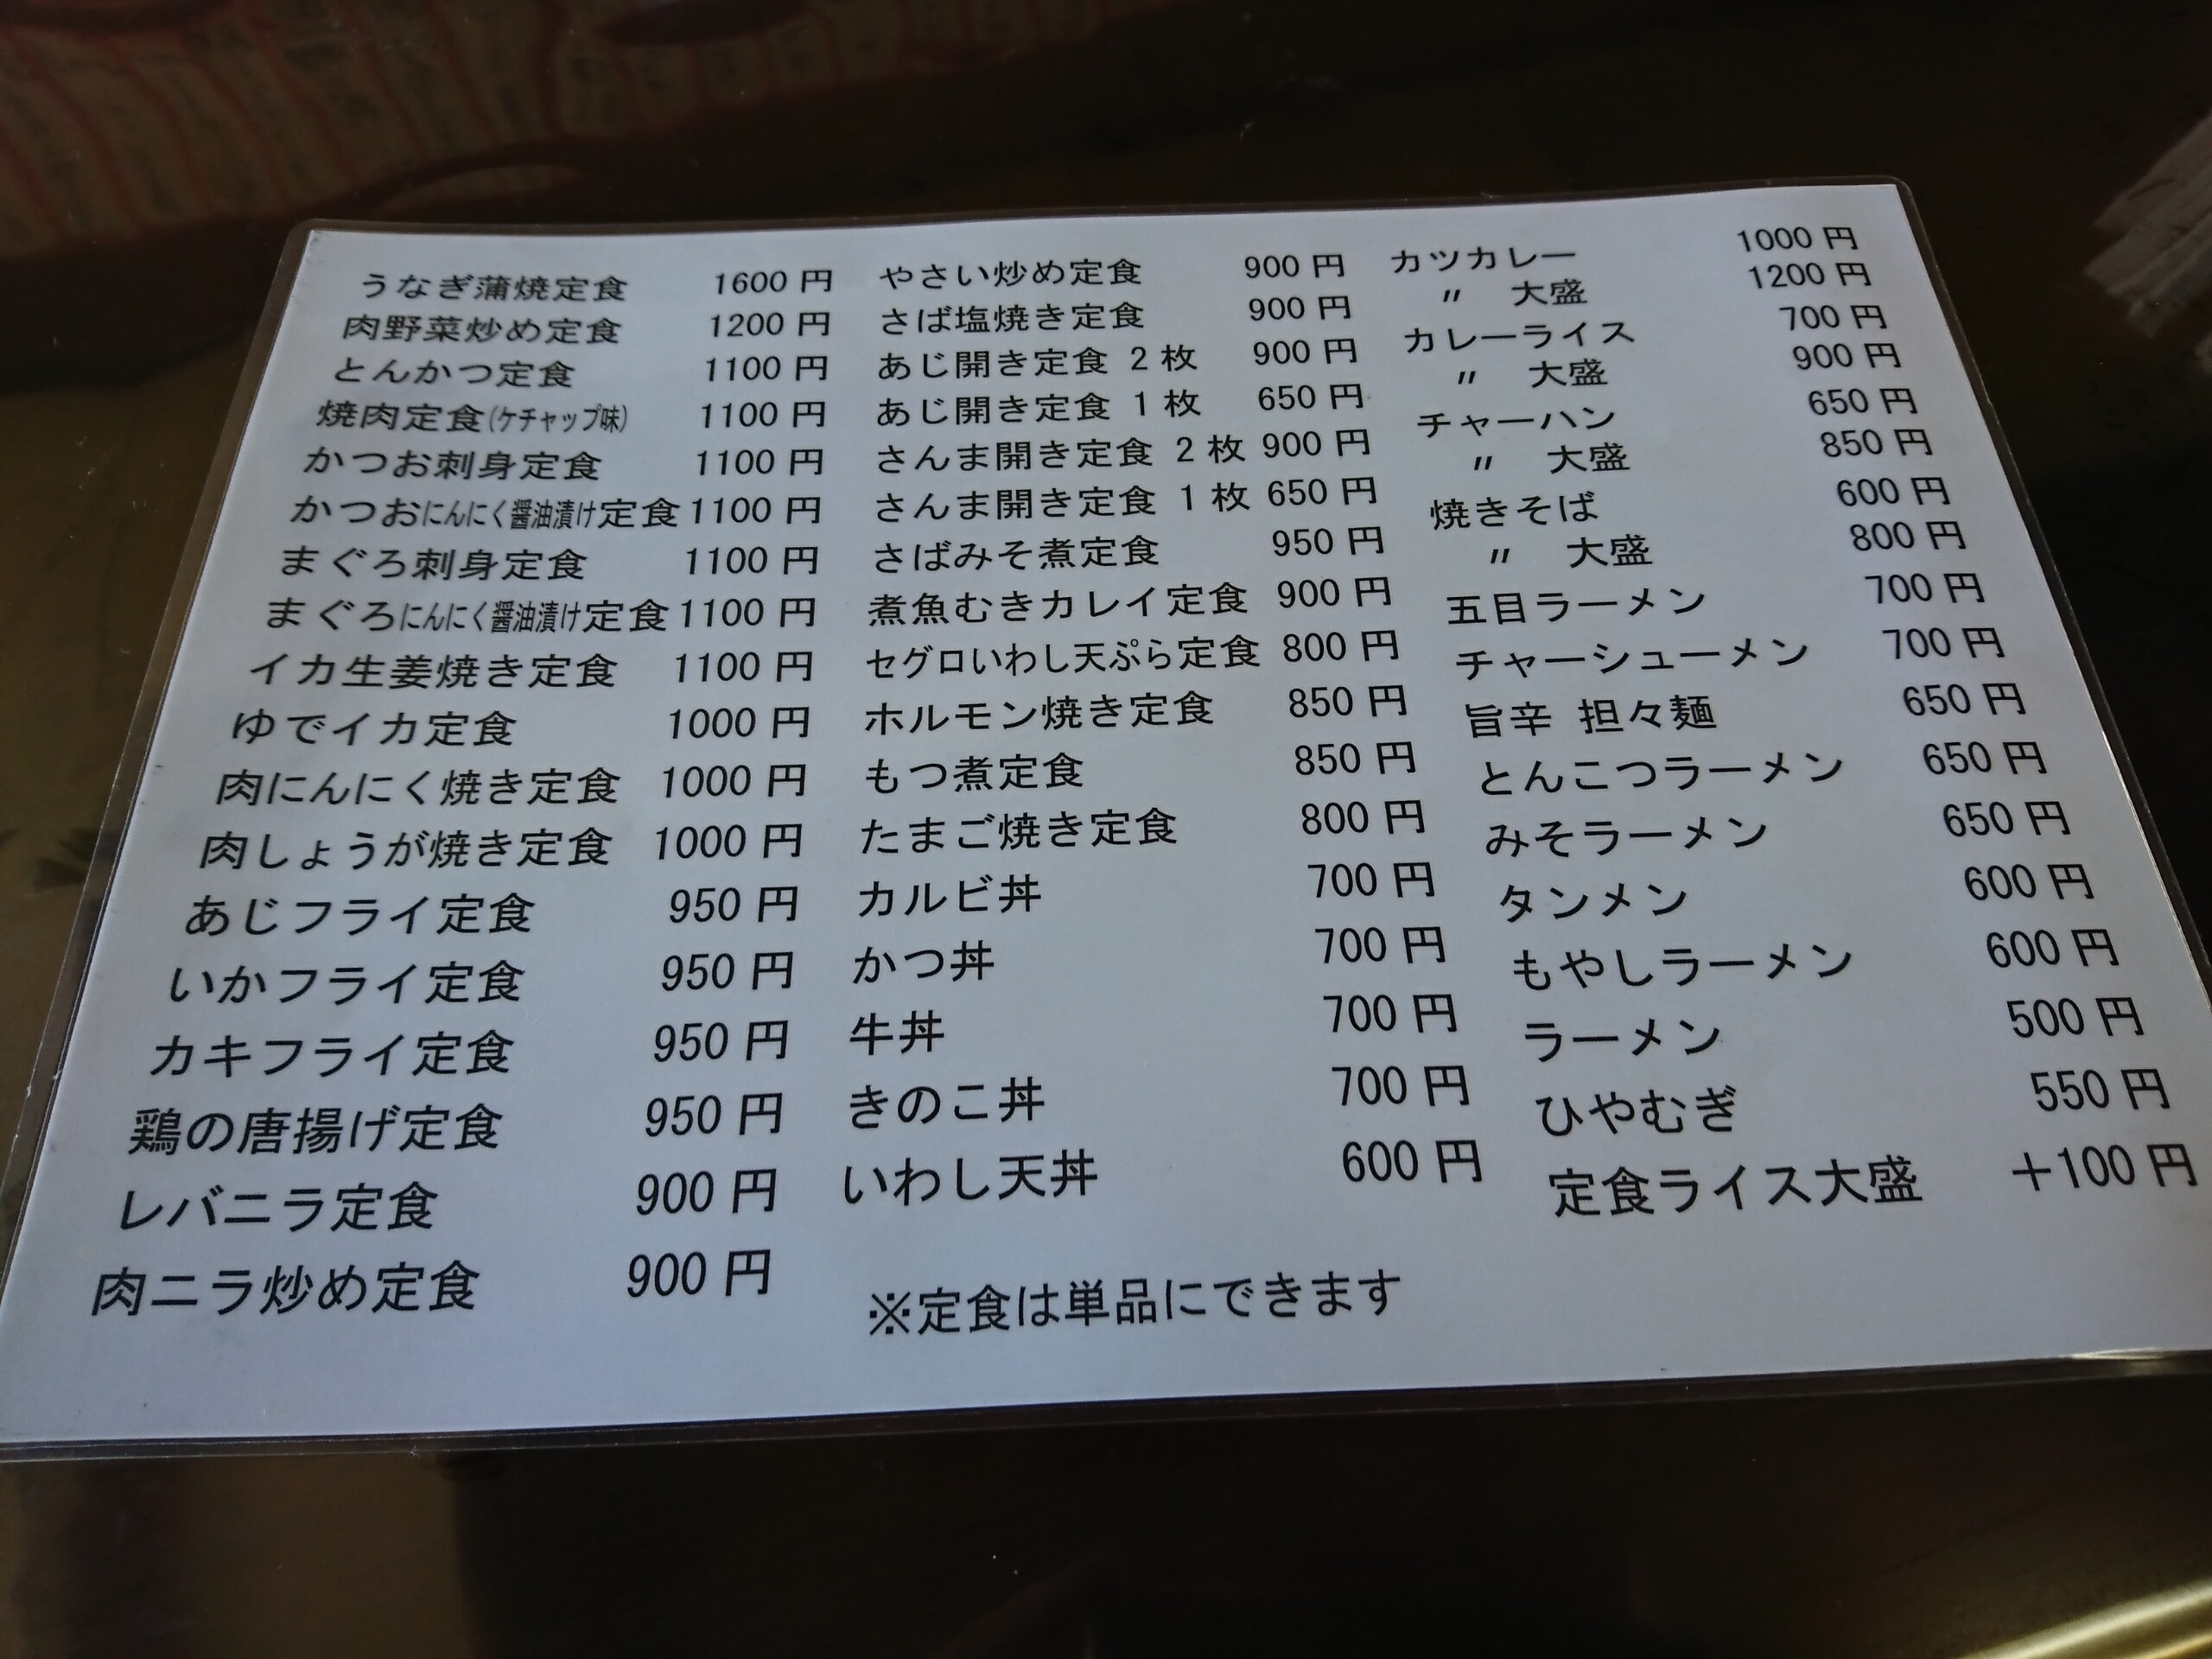 うなぎ蒲焼定食 1600円
肉野菜炒め定食 1200円
とんかつ定食 1100円
焼肉定食(ケチャップ味) 1100円
かつお刺身定食 1100円
かつおにんにく醤油漬け定食 1100円
まぐろ刺身定食 1100円
まぐろにんにく醤油漬け定食 1100円
イカ生姜焼き定食 1100円
ゆでイカ定食 1000円
肉にんにく焼き定食 1000円
肉しょうが焼き定食 1000円
あじフライ定食 950円
いかフライ定食 950円
カキフライ定食 950円
鶏の唐揚げ定食 950円
レバニラ定食 900円
肉ニラ炒め定食 900円
やさい炒め定食 900円
さば塩焼き定食 900円
あじ開き定食 2枚 900円
あじ開き定食 1枚 650円
さんま開き定食 2枚 900円
さんま開き定食 1枚 650円
さばみそ煮定食 950円
煮魚むきカレイ定食 900円
セグロいわし天ぷら定食 800円
ホルモン焼き定食 850円
もつ煮定食 850円
たまご焼き定食 800円
カルビ丼 700円
かつ丼 700円
牛丼 700円
きのこ丼 700円
いわし天丼 600円
※定食は単品にできます
カツカレー 1000円
〃 大盛 1200円
カレーライス 700円
〃 大盛 900円
チャーハン 650円
〃 大盛 850円
焼きそば 600円
〃 大盛 800円
五目ラーメン 700円
チャーシューメン 700円
旨辛 担々麺 650円
とんこつラーメン 650円
みそラーメン 650円
タンメン 600円
もやしラーメン 600円
ラーメン 500円
ひやむぎ 550円
定食ライス大盛 +100円